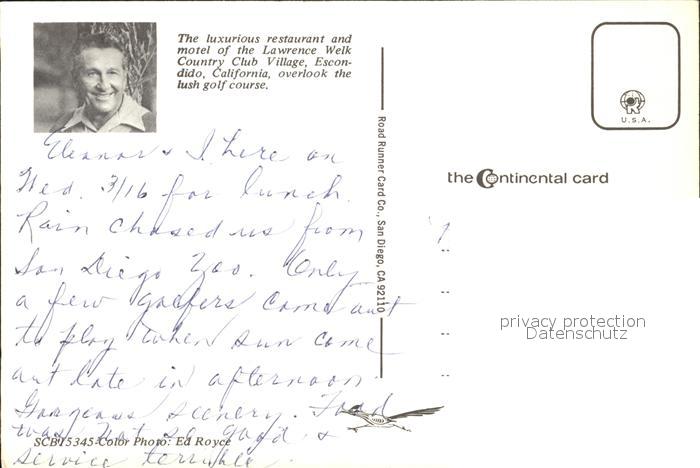 The luxurious restaurant and
motel of the Lawrence Welk
Country Club Village, Escon-
dido, California, overlook the
lush golf course.
Eleanor & I here on
Wed. 3/16 for lunch.
Rain chased us from
San Diego Zoo. Only
a few golfers came out
to play when sun came
out late in afternoon.
Gorgeous scenery. Food
was not so good &
service terrible.
SCB15345 Color Photo: Ed Royce
Road Runner Card Co., San Diego, CA 92110
U.S.A.
the Continental card
privacy protection
Datenschutz